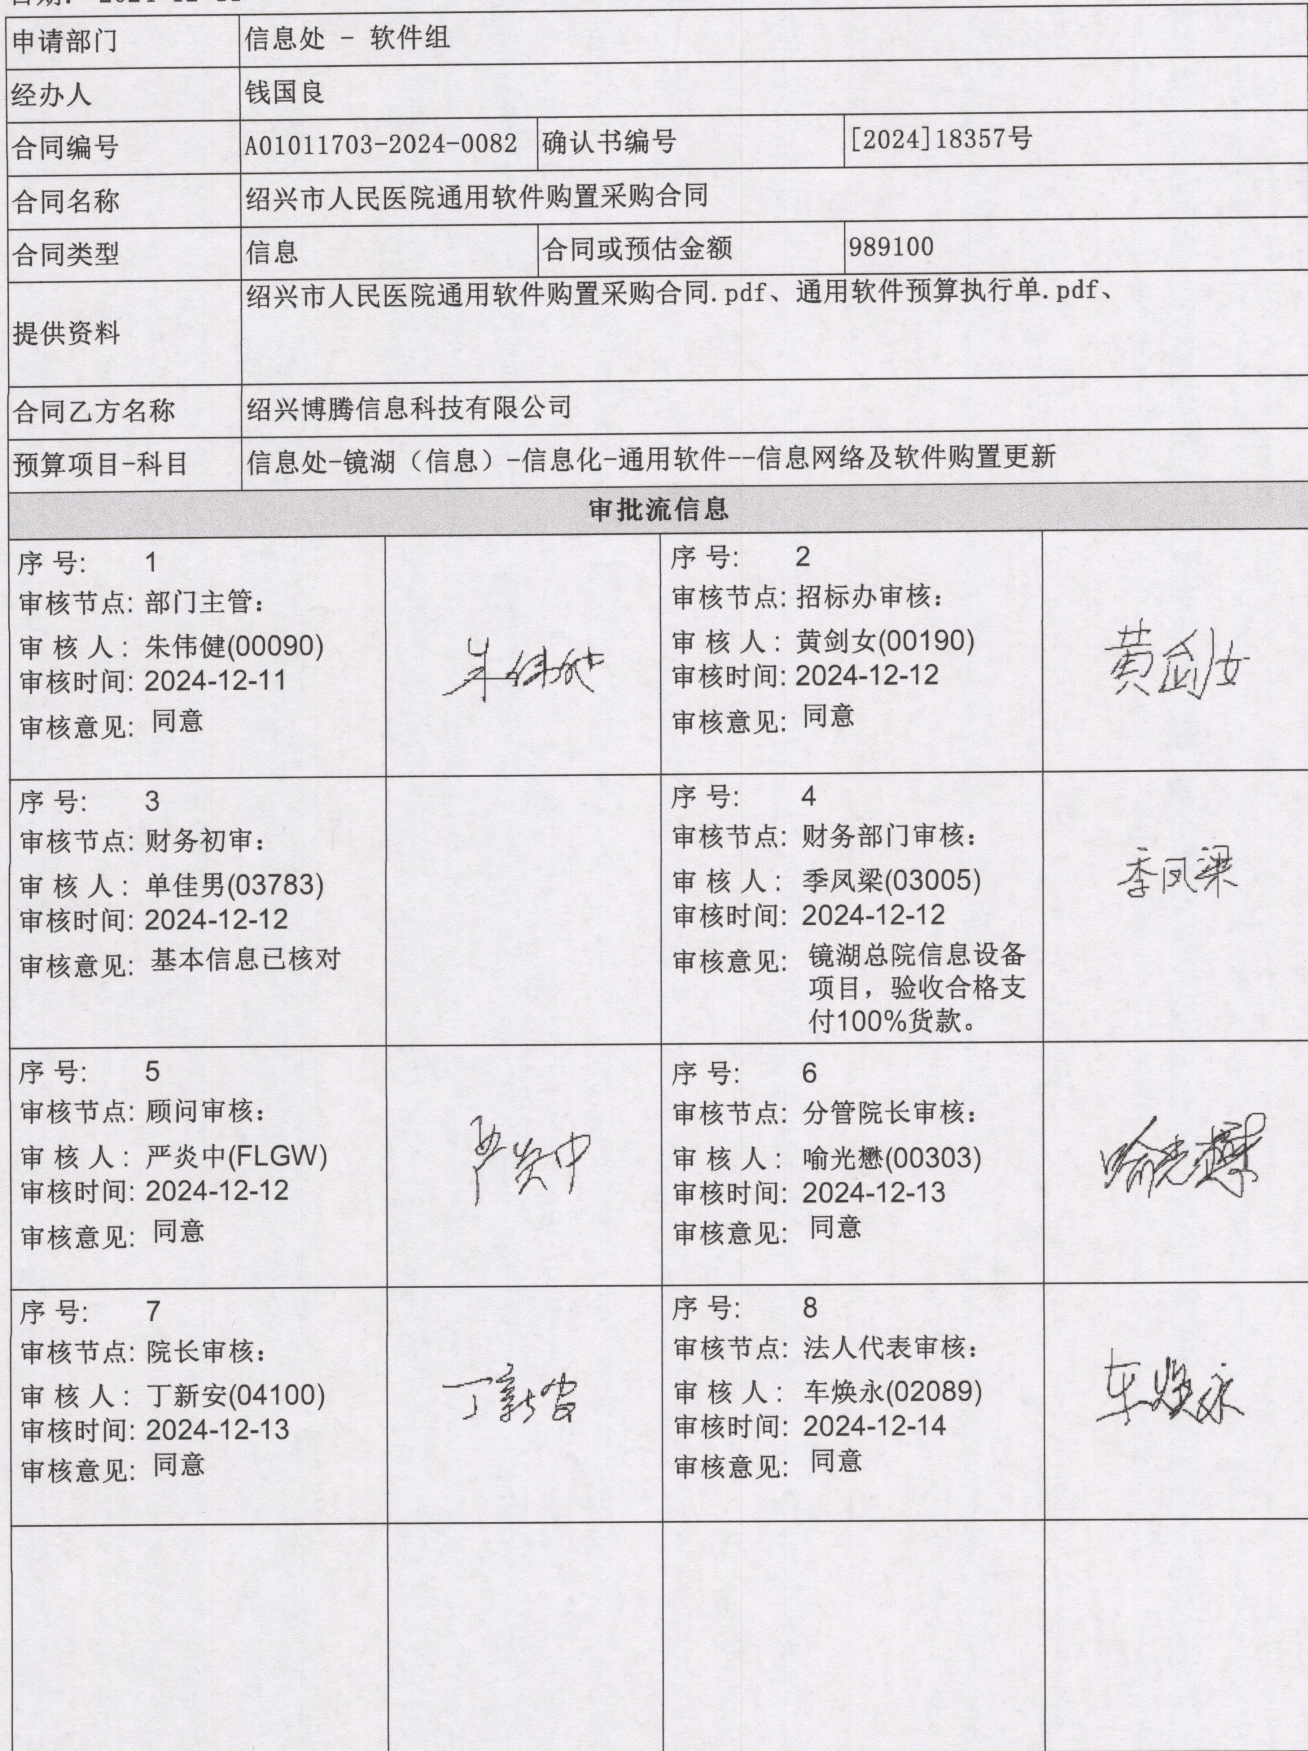 申请部门 信息处 - 软件组
经办人 钱国良
合同编号 A01011703-2024-0082 确认书编号 [2024]18357号
合同名称 绍兴市人民医院通用软件购置采购合同
合同类型 信息 合同或预估金额 989100
提供资料 绍兴市人民医院通用软件购置采购合同.pdf、通用软件预算执行单.pdf、
合同乙方名称 绍兴博腾信息科技有限公司
预算项目-科目 信息处-镜湖（信息）-信息化-通用软件--信息网络及软件购置更新
审批流信息
序 号: 1
审核节点: 部门主管:
审 核 人: 朱伟健(00090)
审核时间: 2024-12-11
审核意见: 同意
朱伟健
序 号: 2
审核节点: 招标办审核:
审 核 人: 黄剑女(00190)
审核时间: 2024-12-12
审核意见: 同意
黄剑女
序 号: 3
审核节点: 财务初审:
审 核 人: 单佳男(03783)
审核时间: 2024-12-12
审核意见: 基本信息已核对
序 号: 4
审核节点: 财务部门审核:
审 核 人: 季凤梁(03005)
审核时间: 2024-12-12
审核意见: 镜湖总院信息设备
项目，验收合格支
付100%货款。
季凤梁
序 号: 5
审核节点: 顾问审核:
审 核 人: 严炎中(FLGW)
审核时间: 2024-12-12
审核意见: 同意
严炎中
序 号: 6
审核节点: 分管院长审核:
审 核 人: 喻光懋(00303)
审核时间: 2024-12-13
审核意见: 同意
喻光懋
序 号: 7
审核节点: 院长审核:
审 核 人: 丁新安(04100)
审核时间: 2024-12-13
审核意见: 同意
丁新安
序 号: 8
审核节点: 法人代表审核:
审 核 人: 车焕永(02089)
审核时间: 2024-12-14
审核意见: 同意
车焕永